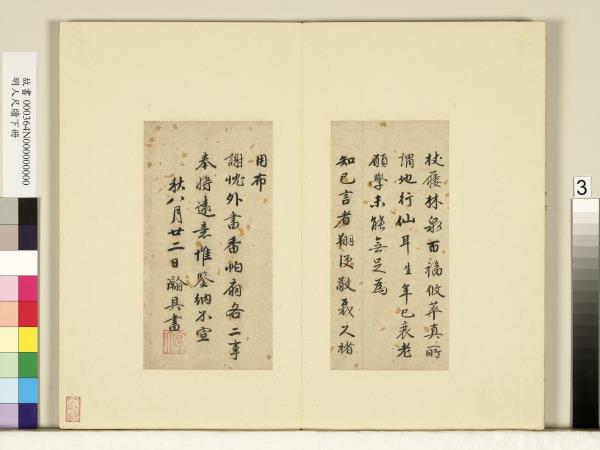 杖屨林泉百福攸萃真所
謂地行仙耳生年已衰老
願學未能無足為
知己言者翔便敬裁又楮
用布
謝忱外書香帕扇各二事
奉將遠意惟鑒納不宣
秋八月廿二日瀚具書
故書 000364N000000000
明人尺牘下冊
3